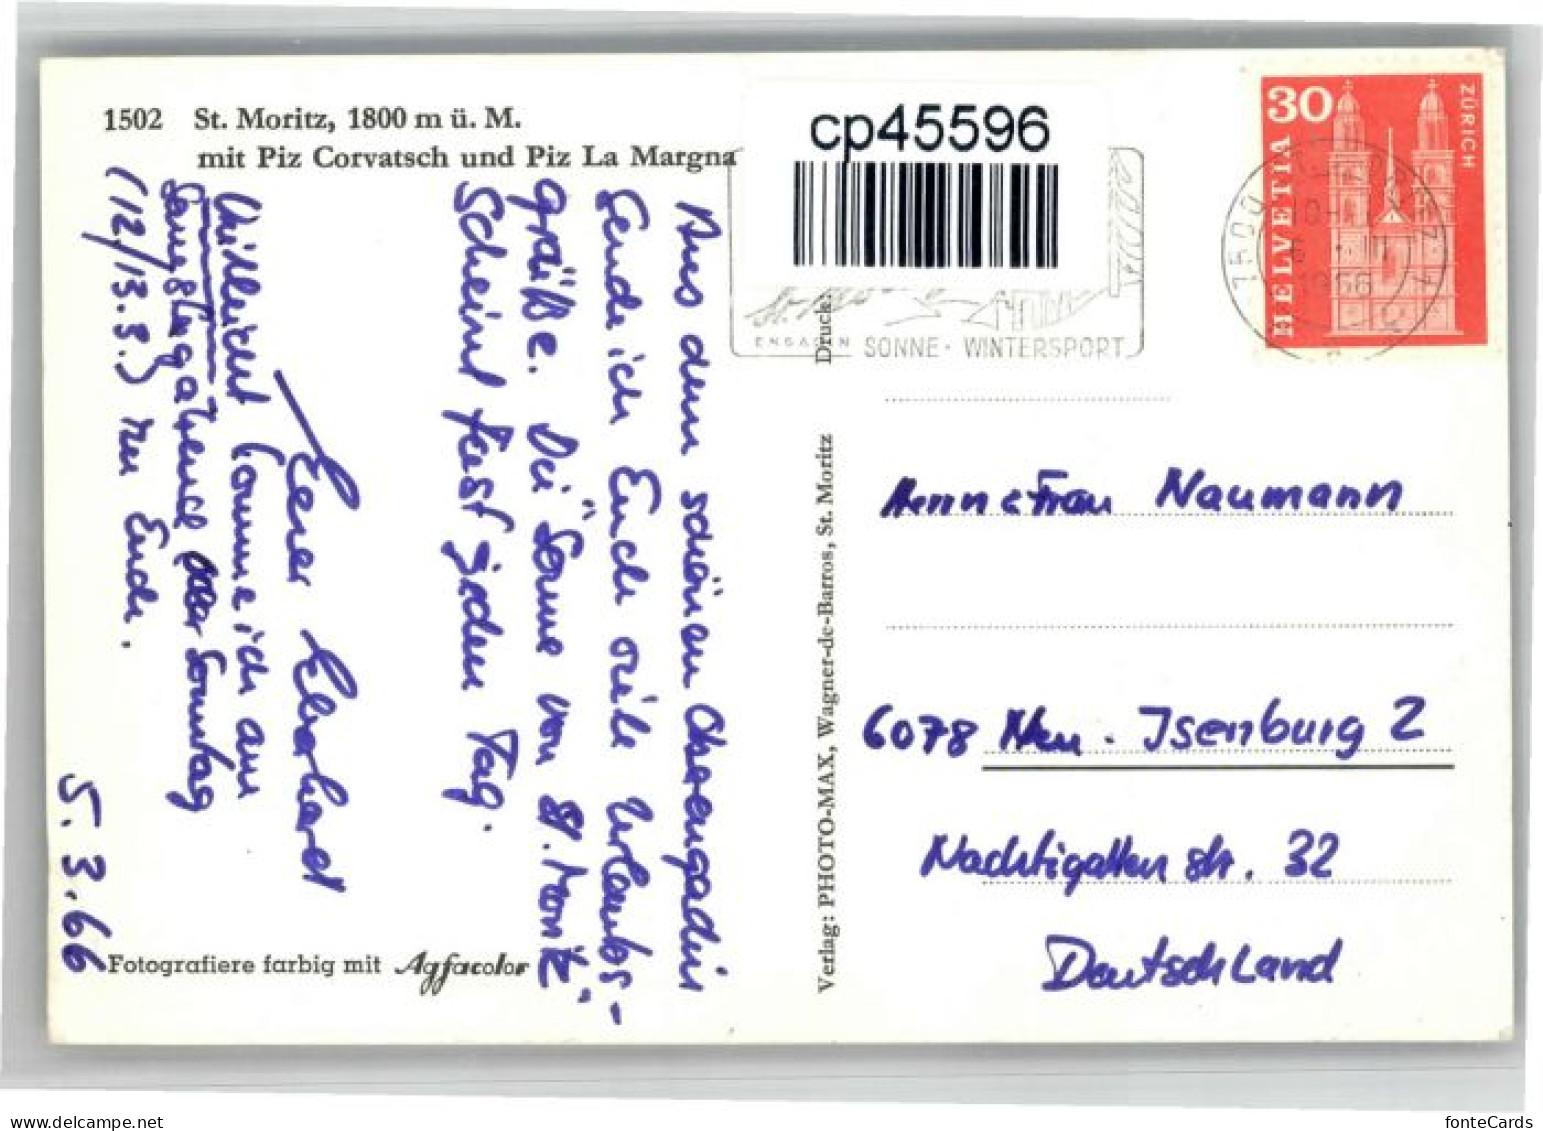 1502 St. Moritz, 1800 m ü. M.
mit Piz Corvatsch und Piz La Margna
Aus dem schönen Oberengadin
sende ich Euch viele Urlaubs-
grüße. Die "Sonne von St. Moritz"
scheint fast jeden Tag.
Euer Eberhard
Vielleicht komme ich am
Samstagabend oder Sonntag
(12/13.3.) zu Euch.
5.3.66
Fotografiere farbig mit Agfacolor
Verlag: PHOTO-MAX, Wagner-de-Barros, St. Moritz
Druck:
cp45596
ENGADIN SONNE · WINTERSPORT
30
HELVETIA
ZÜRICH
7500
1966
Herrn & Frau Naumann
6078 Neu-Isenburg 2
Nachtigallenstr. 32
Deutschland
https://www.delcampe.net
fonteCards